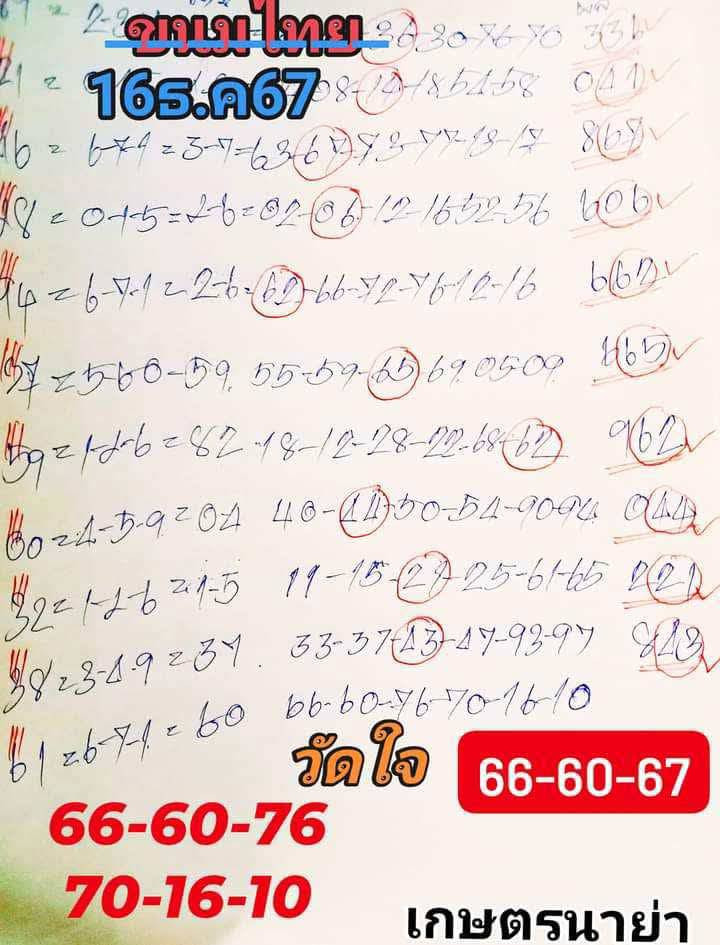 ขนมไทย 36-30-76-70 336
16ธ.ค67 08-14-18-54-58 041
16 = 6-7-1 = 3-7 = 63-67-73-77-13-17 867
28 = 0-1-5 = 2-6 = 02-06-12-16 52-56 606
94 = 6-7-1 = 2-6 = 62-66-72-76-12-16 662
57 = 5-6-0 - 59 55-59-65 69 05-09 165
59 = 1-2-6 = 82 18-12-28-22-68-62 962
60 = 4-5-9 = 04 40-44-50-54-90 94 044
32 = 1-2-6 = 1-5 11-15-21-25-61-65 221
38 = 3-4-9 = 37 33-37-43-47-93-97 843
61 = 6-7-1 = 60 66-60-76-70-16-10
วัดใจ 66-60-67
66-60-76
70-16-10
เกษตรนาย่า